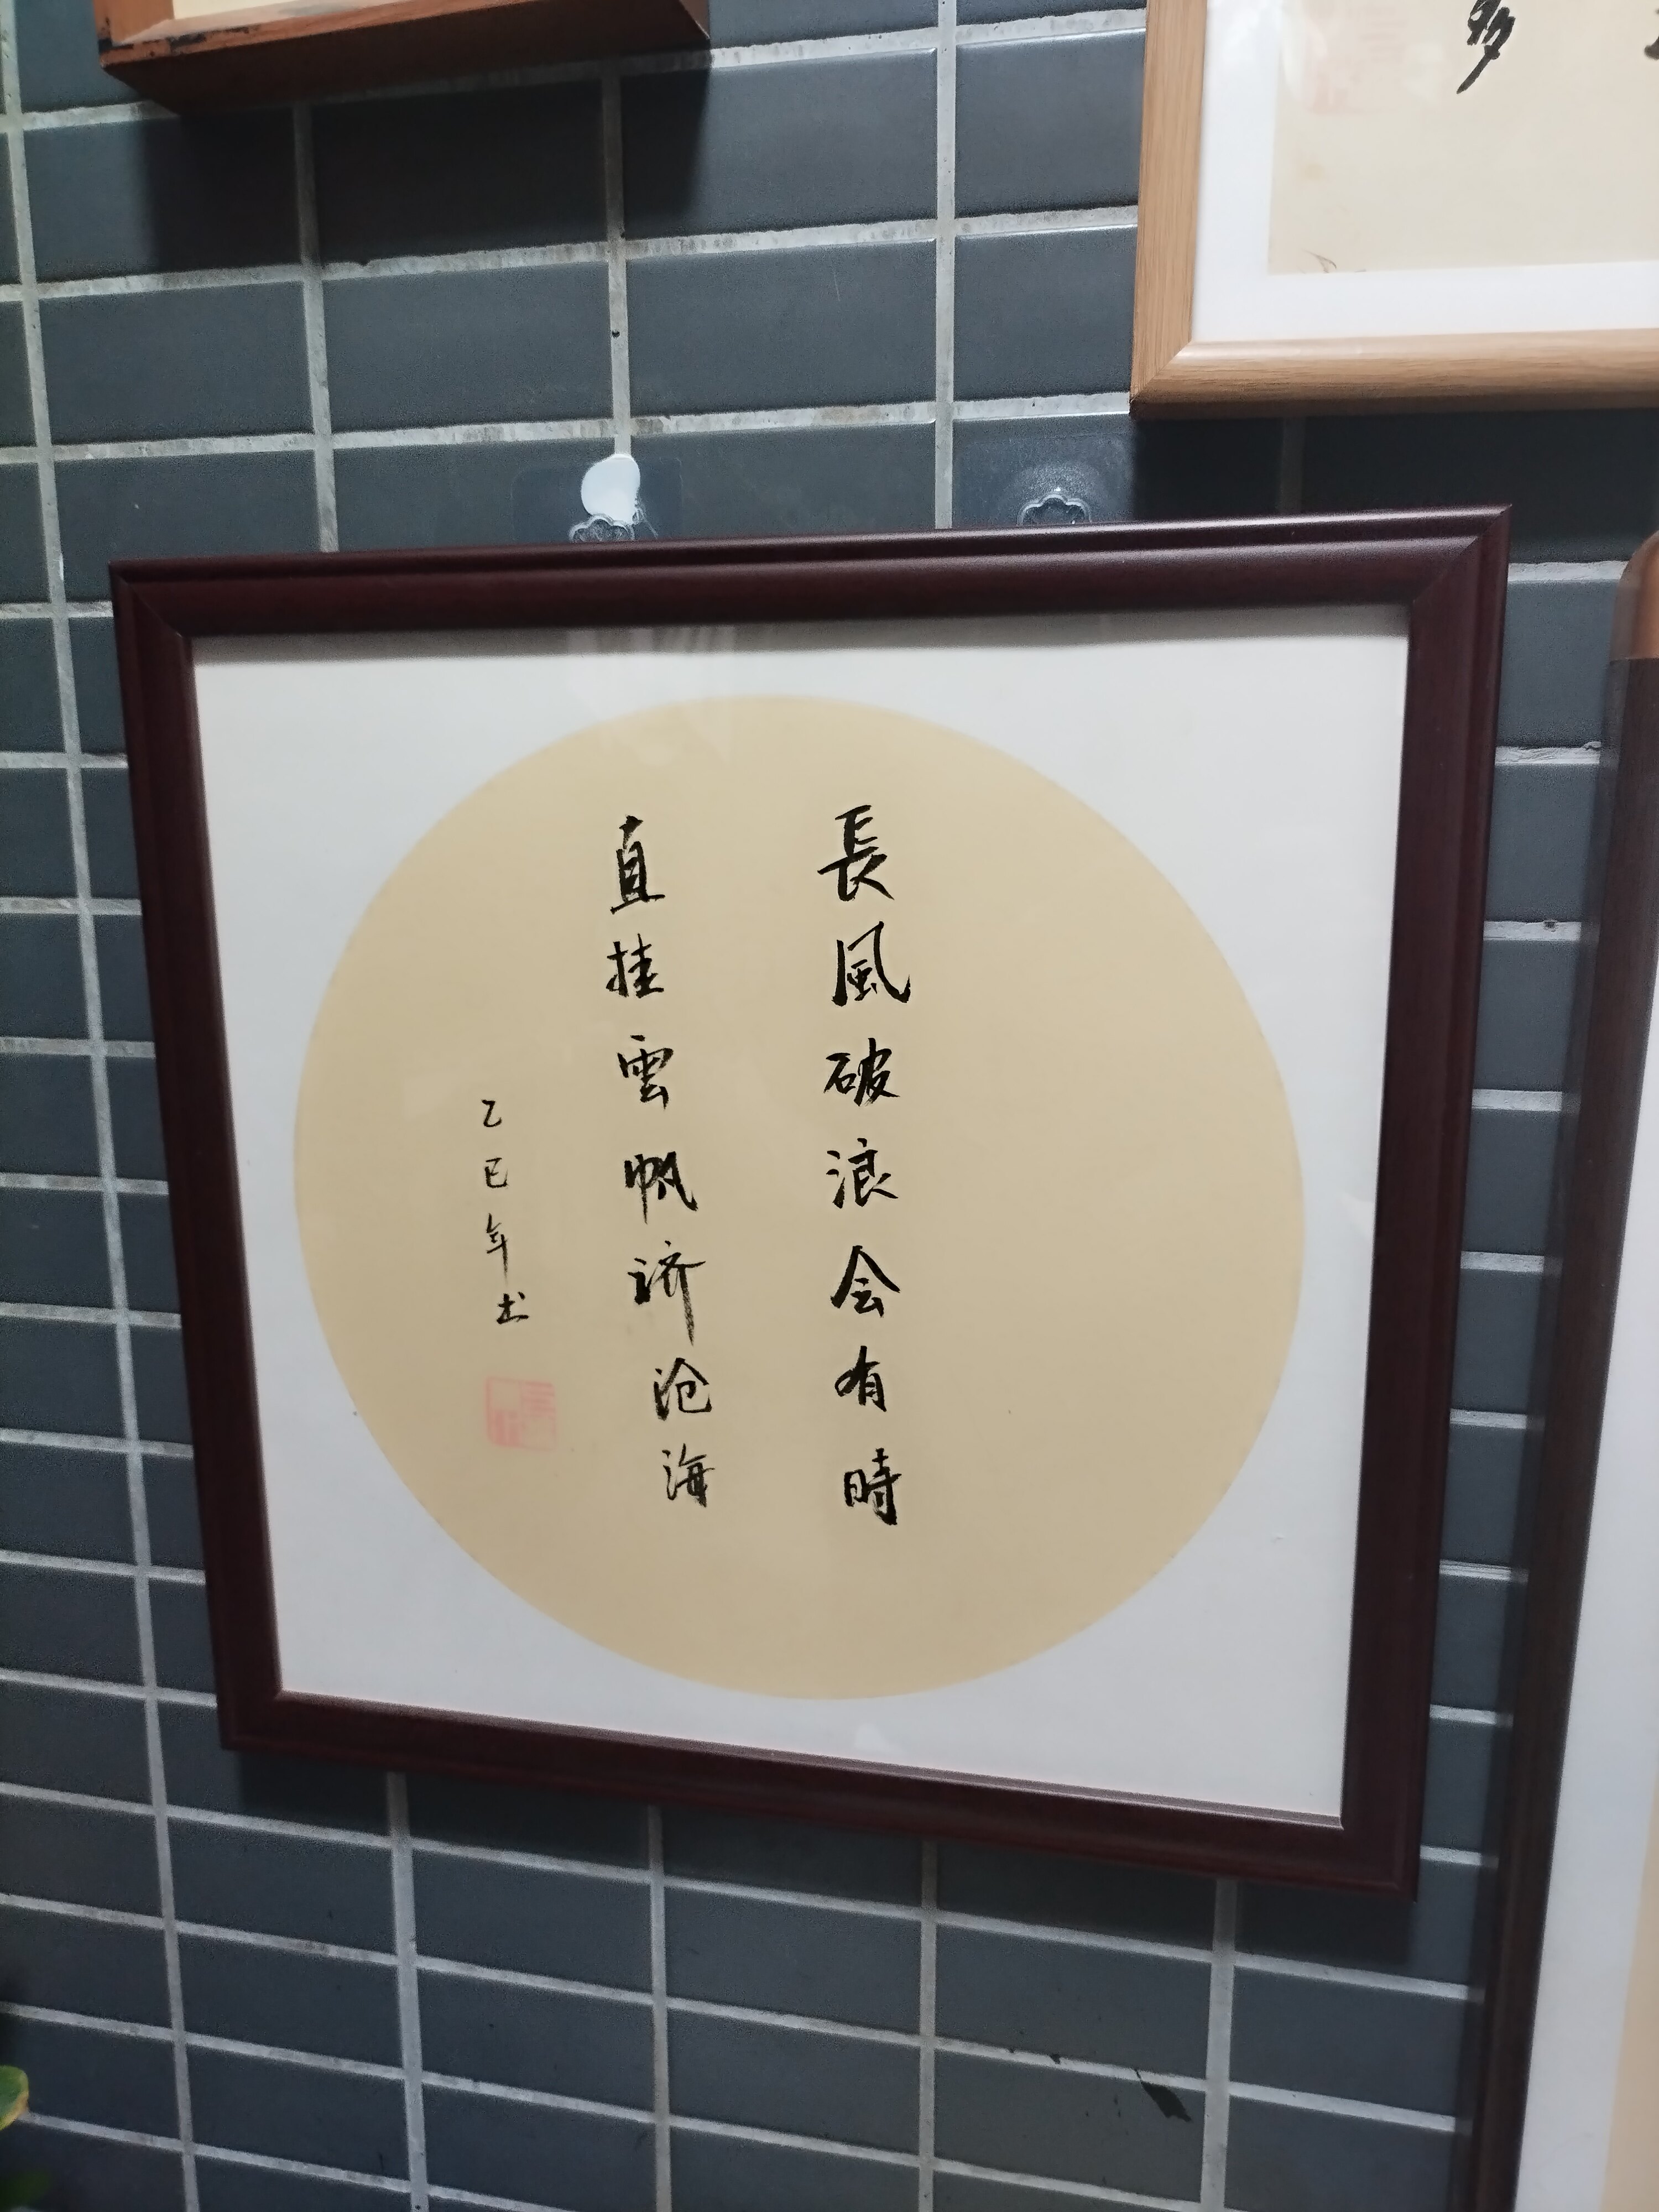 長風破浪会有時
直挂雲帆济沧海
乙巳年书
多